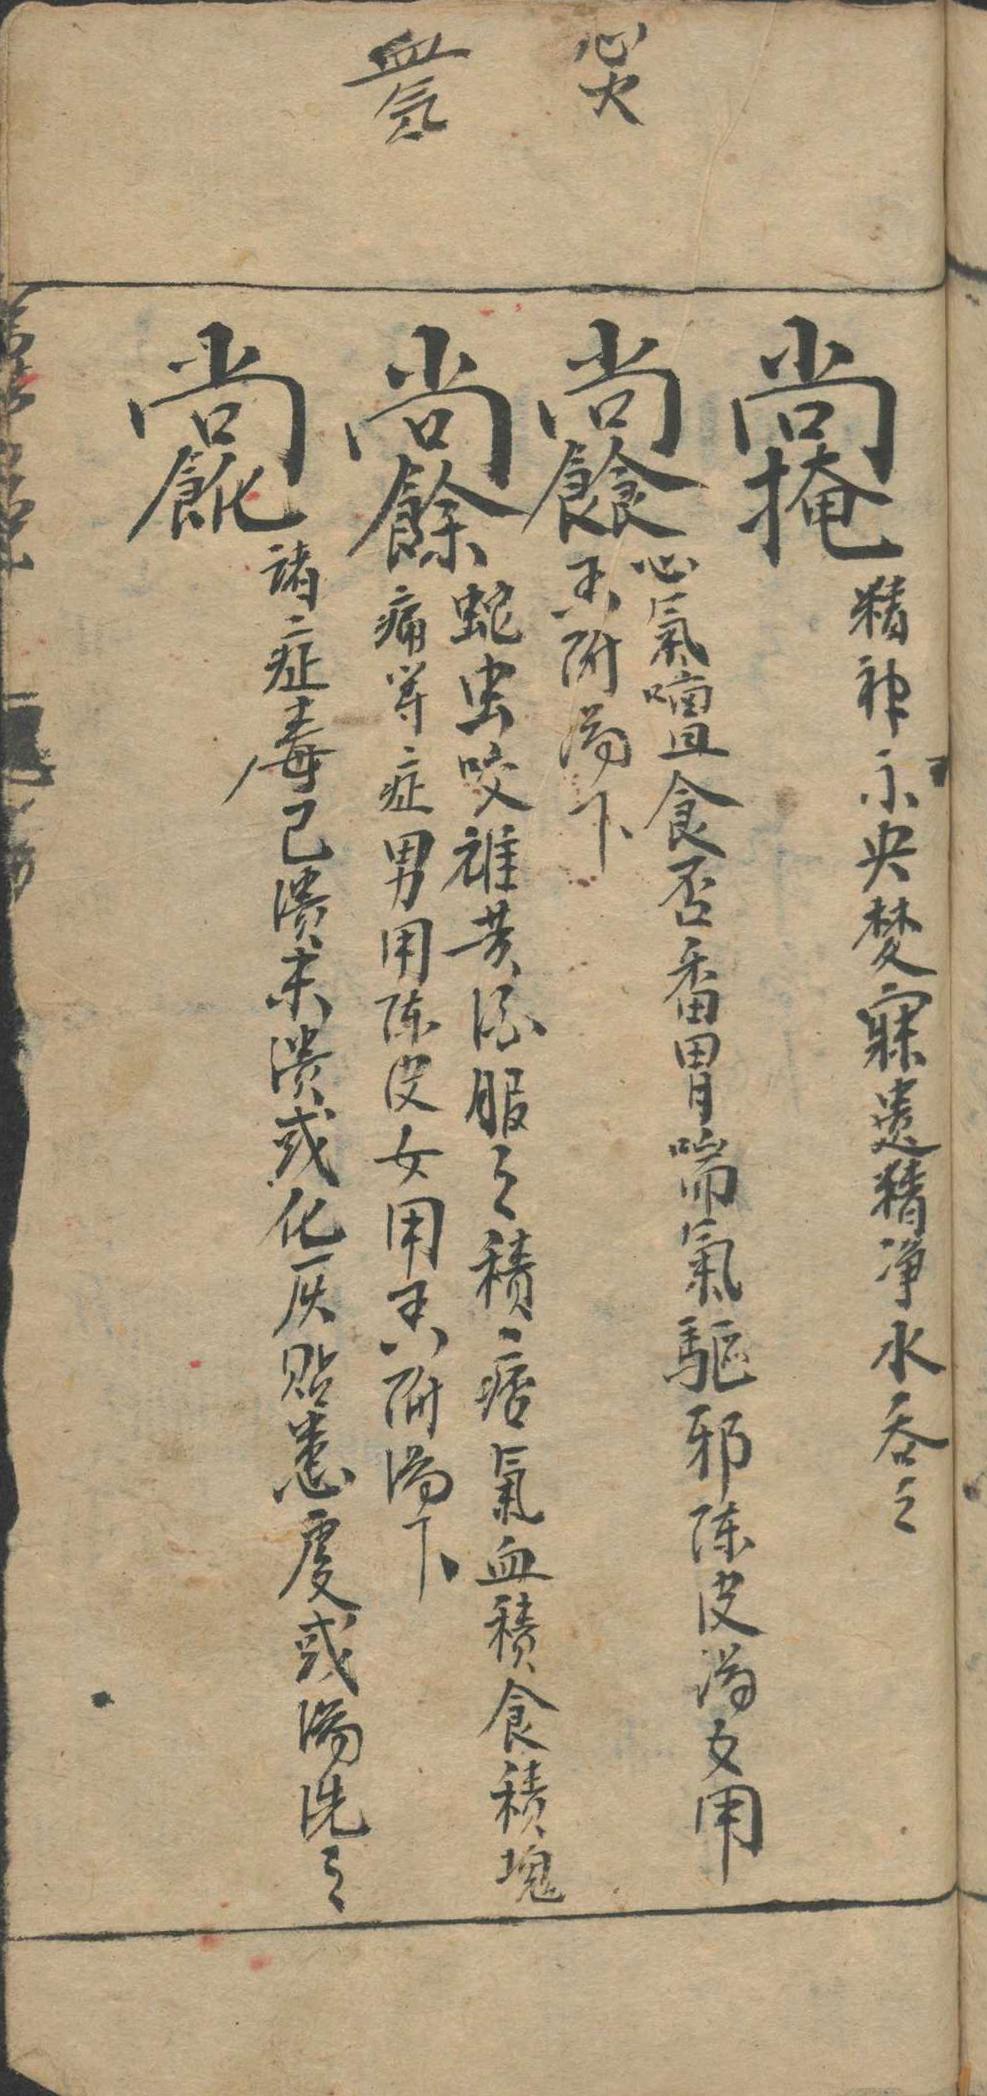 心火
血氣
尚掩
精神不爽梦寐遺精净水吞之
尚
心氣噎食否番胃喘氣驅邪陈皮湯女用
香附湯下
尚餘
蛇虫咬雄黄酒服之積痞氣血積食積塊
痛等症男用陈皮女用香附湯下
尚
諸症毒已潰未潰或化灰贴患處或湯洗之